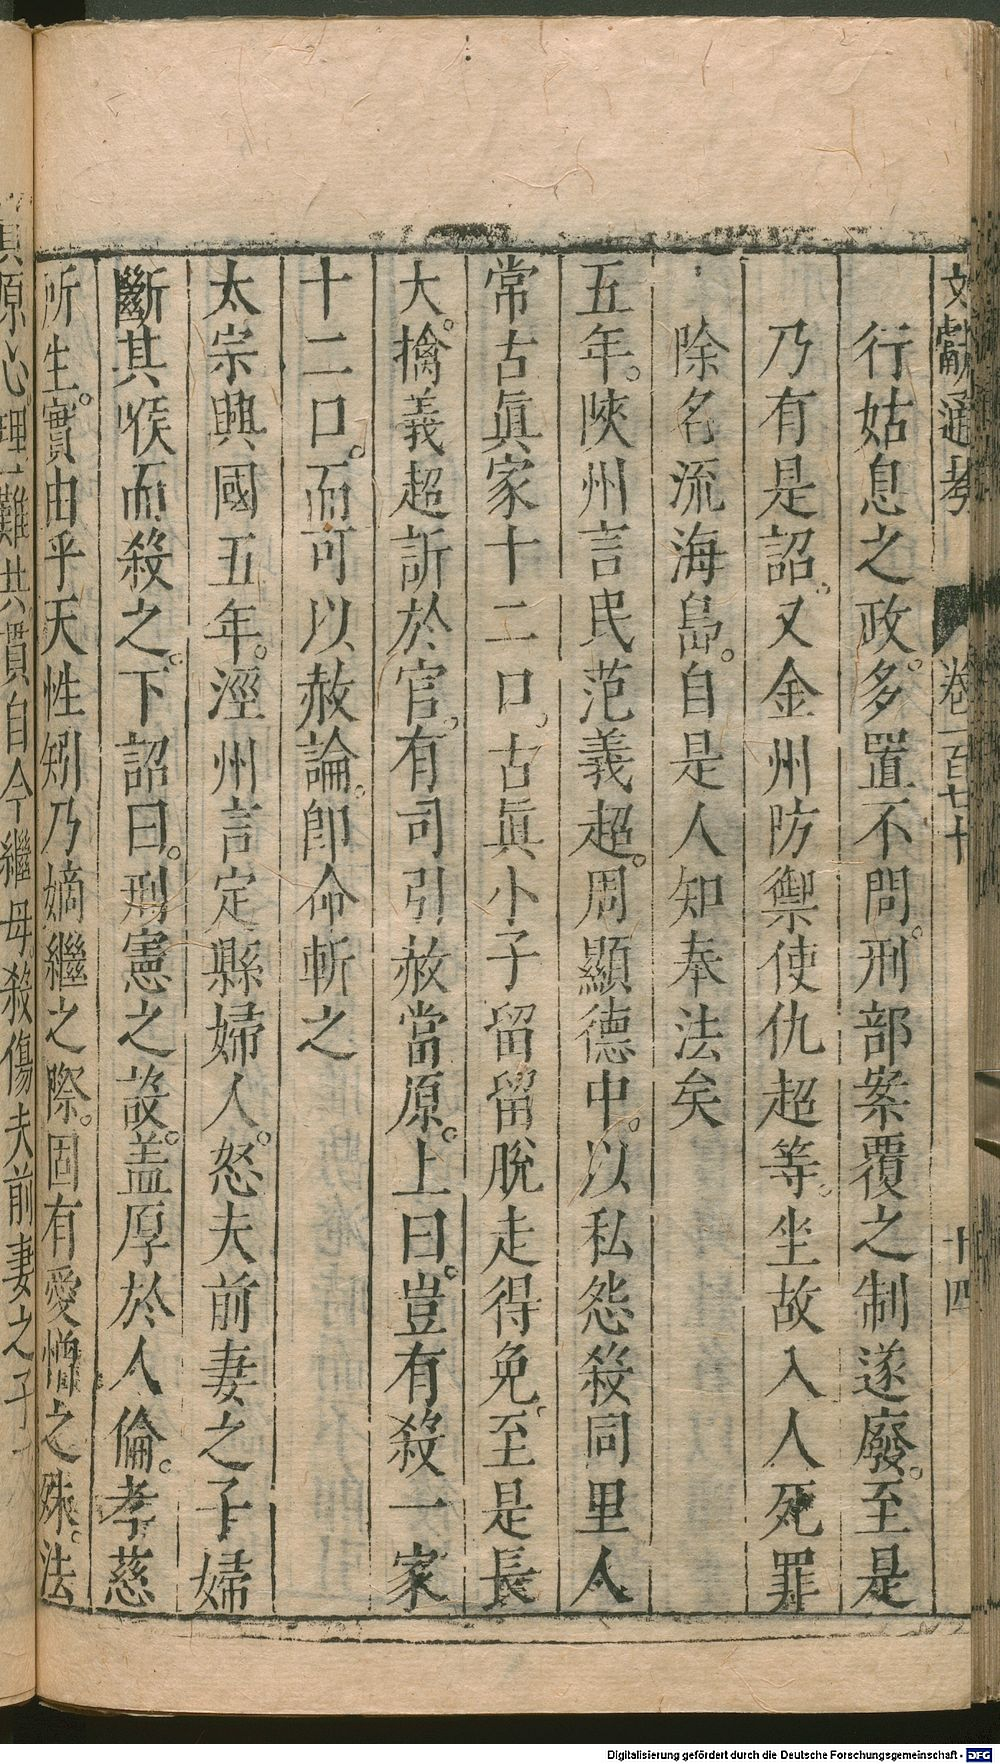 文獻通考 卷一百七十 十四
行姑息之政多置不問。刑部案覆之制遂廢。至是
乃有是詔。又金州防禦使仇超等。坐故入人死罪
除名流海島。自是人知奉法矣
五年。陝州言民范義超。周顯德中。以私怨殺同里人
常古眞家十二口。古眞小子留留脫走得免。至是長
大。擒義超訴於官。有司引赦當原。上曰。豈有殺一家
十二口。而可以赦論。卽命斬之
太宗興國五年。涇州言定縣婦人。怒夫前妻之子婦
斷其喉而殺之。下詔曰。刑憲之設。盖厚於人倫。孝慈
所生。實由乎天性矧乃嫡繼之際。固有愛憎之殊。法
貴原心理難共貫自今繼母殺傷夫前妻之子
Digitalisierung gefördert durch die Deutsche Forschungsgemeinschaft - DFG